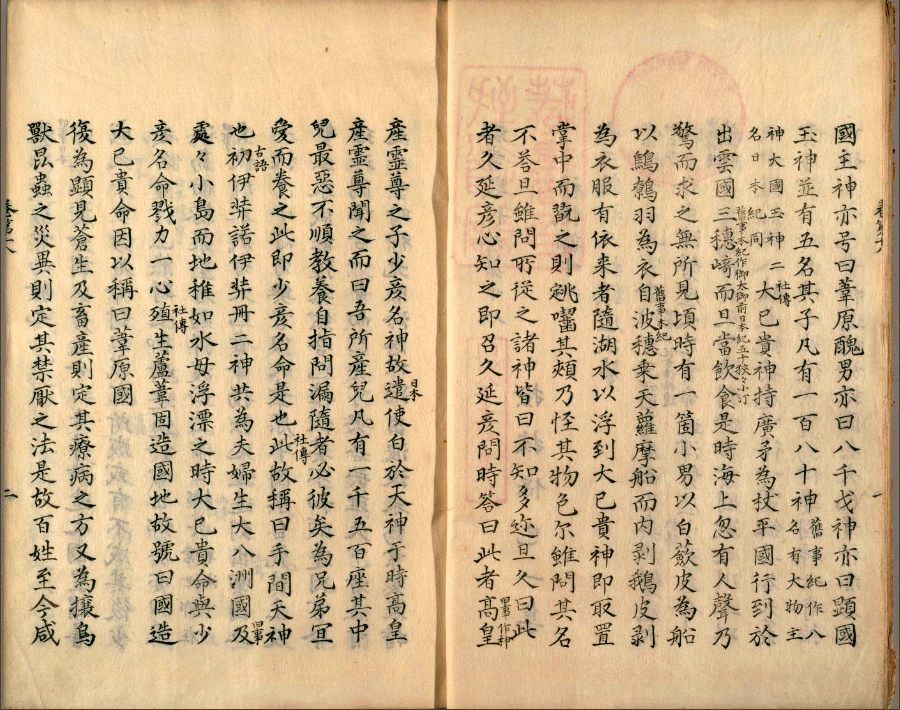 國主神亦号曰葦原醜男亦曰八千戈神亦曰顕國
玉神並有五名其子凡有一百八十神舊事紀作八
名有大物主
神大國玉神二
名日本紀同
社傳
大己貴神持廣矛為杖平國行到於
出雲國三穗﨑
舊事本紀作御大御前日本紀五十狹々小汀
而且當飲食是時海上忽有人聲乃
驚而求之無所見頃時有一箇小男以白蘞皮為船
舊事本紀
以鷦鷯羽為衣自波穗乗天蘿摩船而内剥鵝皮剥
為衣服有依来者隨湖水以浮到大己貴神即取置
掌中而翫之則跳囓其頰乃怪其物色尓雖問其名
不荅且雖問所從之諸神皆曰不知多迩且久曰此
者久延彦心知之即召久延彦問時答曰此者髙皇
産霊尊之子少彦名神故遣使白於天神于時髙皇
日本
産霊尊聞之而曰吾所産兒凡有一千五百座其中
兒最惡不順教養自指間漏隨者必彼矣為兄弟冝
愛而養之此即少彦名命是也此故稱曰手間天神
社傳
也初伊弉諾伊弉冊二神共為夫婦生大八洲國及
古語
處々小島而地稚如水母浮漂之時大己貴命與少
彦名命戮力一心殖生蘆葦固造國地故號曰國造
社傳
大己貴命因以稱曰葦原國
復為顕見蒼生及畜産則定其療病之方又為攘鳥
獸昆蟲之災異則定其禁厭之法是故百姓至今咸